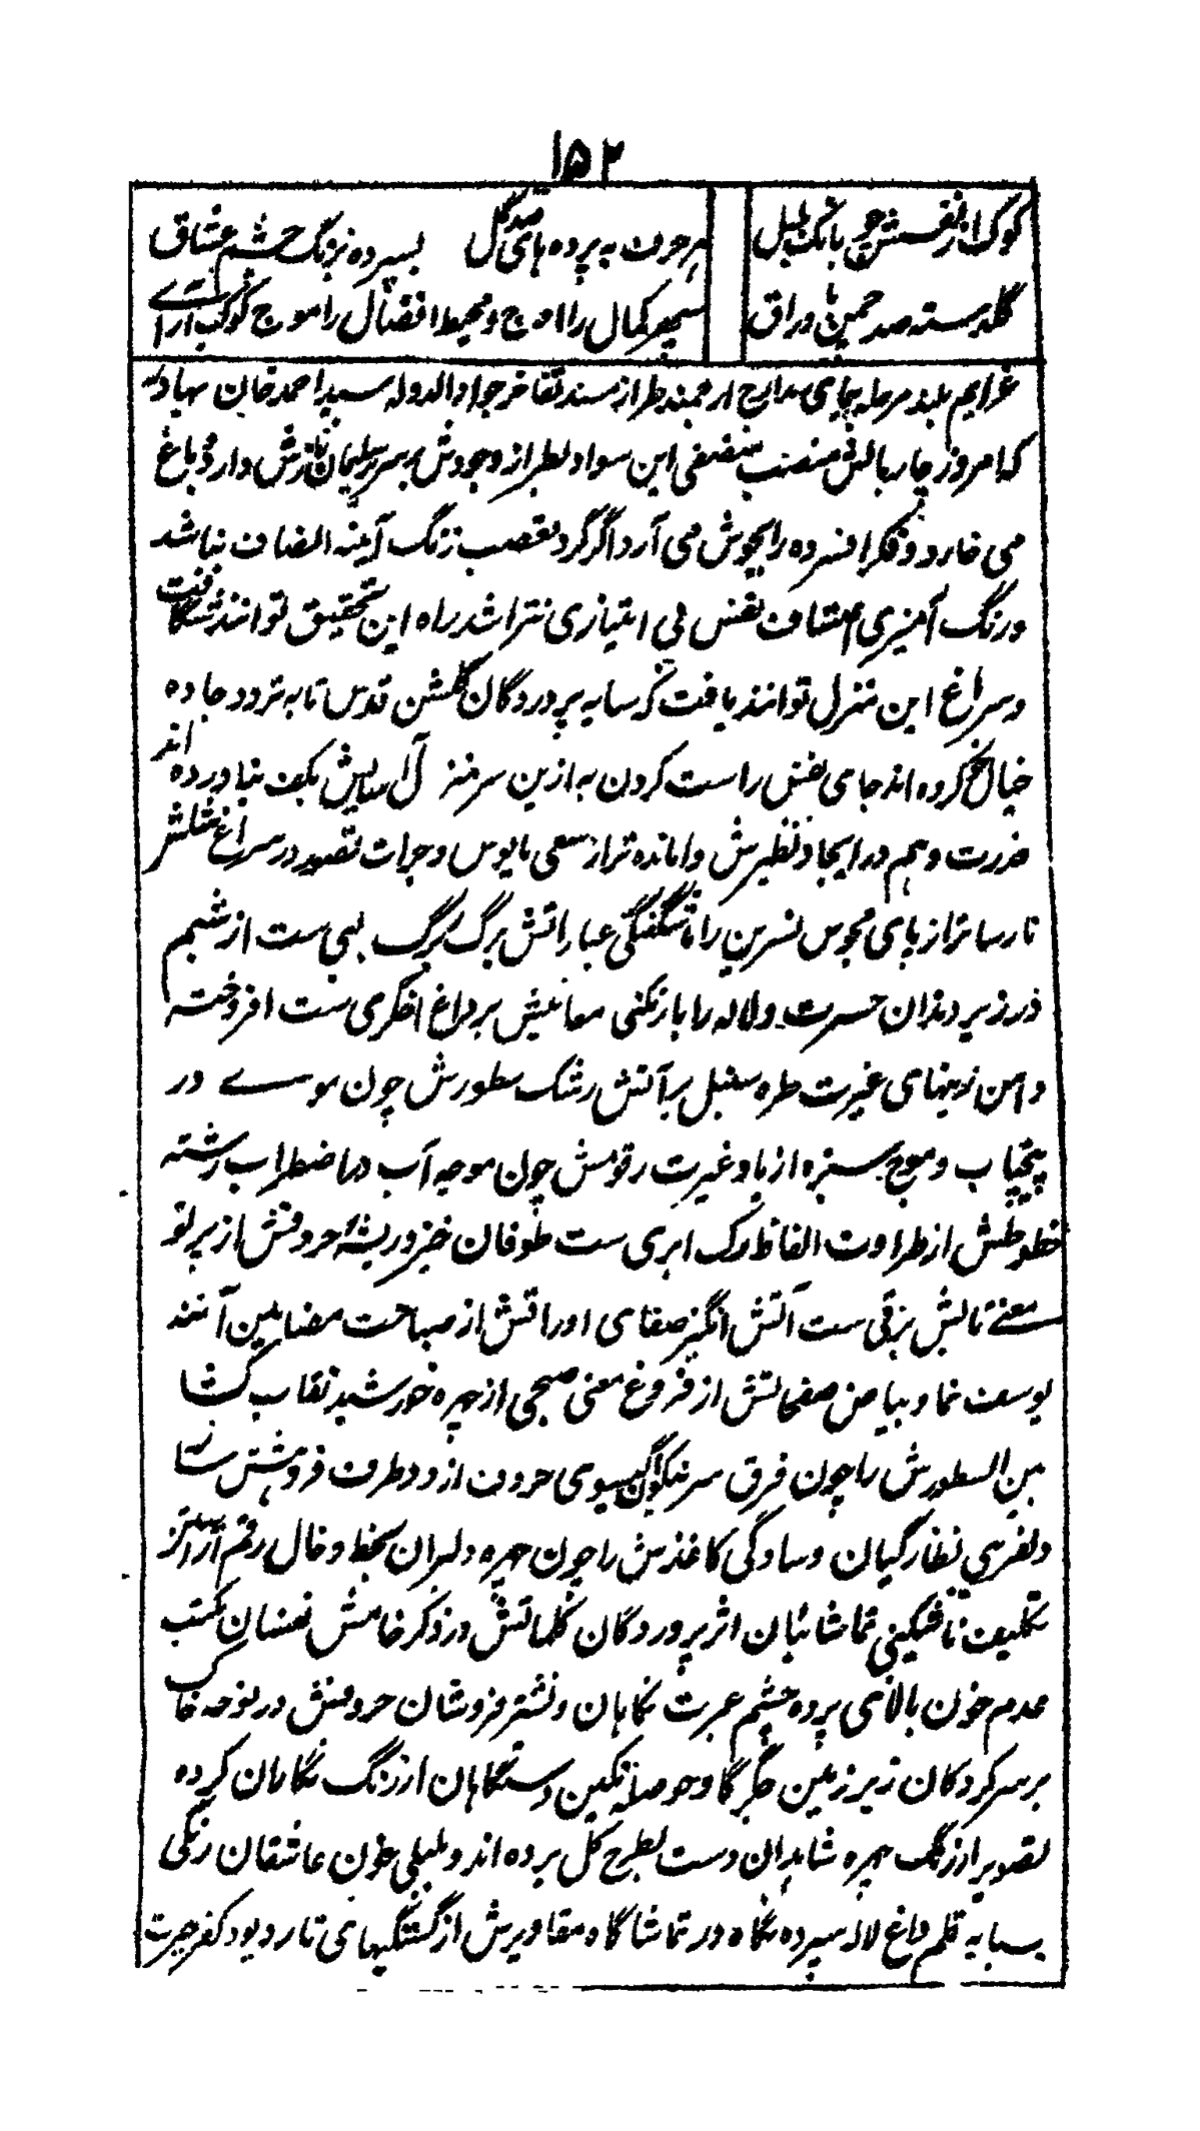 ۱۵۲
کوک از نفسش چو بانگ بلبل هر حرف به پرده های صد گل بسپرده برنگ چشم عشاق
گلدسته صد چمن باوراق سپهر کمال را اوج و محیط افضال را موج کوکب آرای
عزایم بلند مرحله پیمای مدارج ارجمند طراز مسند تفاخر جواد الدوله سید احمد خان بهادر
که امروز چار بالش منصب منصفی این سواد بطراز وجودش بر سریر سلیمان نازش دارد دماغ
می خارد و فکر افسرده را بجوش می آرد اگر گرد تعصب زنگ آیینه انصاف نباشد
و رنگ آمیزی اعتساف نقش بی امتیازی نتراشد راه این تحقیق توانند شگافت
و سراغ این منزل توانند یافت که سایه پروردگان گلشن قدس تا به تردد جاده
خیال کرده اند جای نفس راست کردن به ازین سرمنزل آسایش بکف نیاورده اند
قدرت وهم در ایجاد نظیرش وامانده تر از سعی مایوس و جرات تصور در سراغ مثلش
نارساتر از پای محبوس نسرین را شگفتگی عباراتش برگ برگ لبی ست از شبنم
در زیر دندان حسرت و لاله را با رنگینی معانیش بر داغ اخگری ست افروخته
دامن زنیهای غیرت طره سنبل بر آتش رشک سطورش چون موے در
پیچتاب و موج سبزه از باد غیرت رقومش چون موجه آب در اضطراب رشته
خطوطش از طراوت الفاظ رگ ابری ست طوفان خیز و ریشۀ حروفش از پرتو
معنے تابش برقی ست آتش انگیز صفای اوراقش از صباحت مضامین آئنه
یوسف نما و بیاض صفحاتش از فروغ معنی صبحی از چهره خورشید نقاب کشا
بین السطورش را چون فرق سرنیکوان گیسوی حروف از دو طرف فروهشتن
دلفریبی نظارگیان و سادگی کاغذش را چون چهره دلبران بخط و خال رقم آراستن
تکلیف ناشکیبی تماشائیان اثر پروردگان کلماتش در ذکر خامش نفسان مکتب
عدم خون بالای پرده چشم عبرت نگاهان و نشتر فروشان حروفش در نوحه خاک
بر سر کردگان زیر زمین جگر کاو حوصله تمکین دستگاهان ارزنگ نگاران کرده
تصویر از رنگ چهره شاهدان دست بطرح گل برده اند و بلبلی خون عاشقان رنگی
بسایه قلم داغ لاله سپرده نگاه در تماشا گاه مقاویرش از گسستگیهای تار و پود کفر حیرت